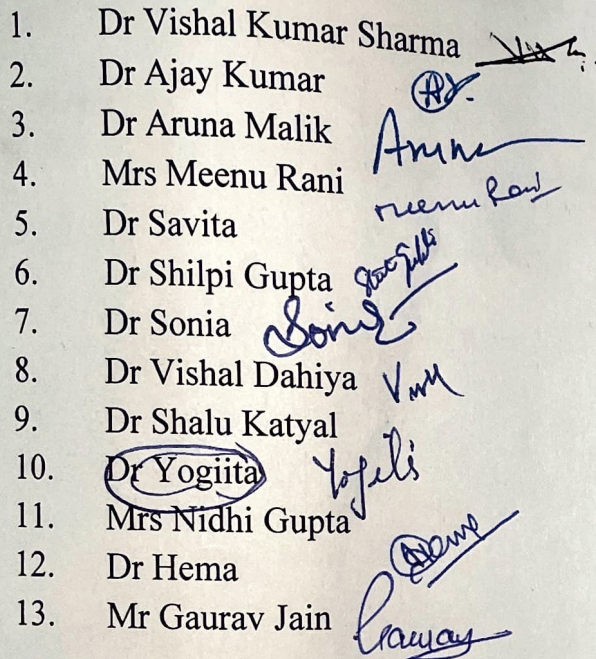 1. Dr Vishal Kumar Sharma
2. Dr Ajay Kumar
3. Dr Aruna Malik Aruna
4. Mrs Meenu Rani Meenu Rani
5. Dr Savita
6. Dr Shilpi Gupta
7. Dr Sonia Sonia
8. Dr Vishal Dahiya
9. Dr Shalu Katyal
10. Dr Yogiita
11. Mrs Nidhi Gupta
12. Dr Hema Hema
13. Mr Gaurav Jain Gaurav